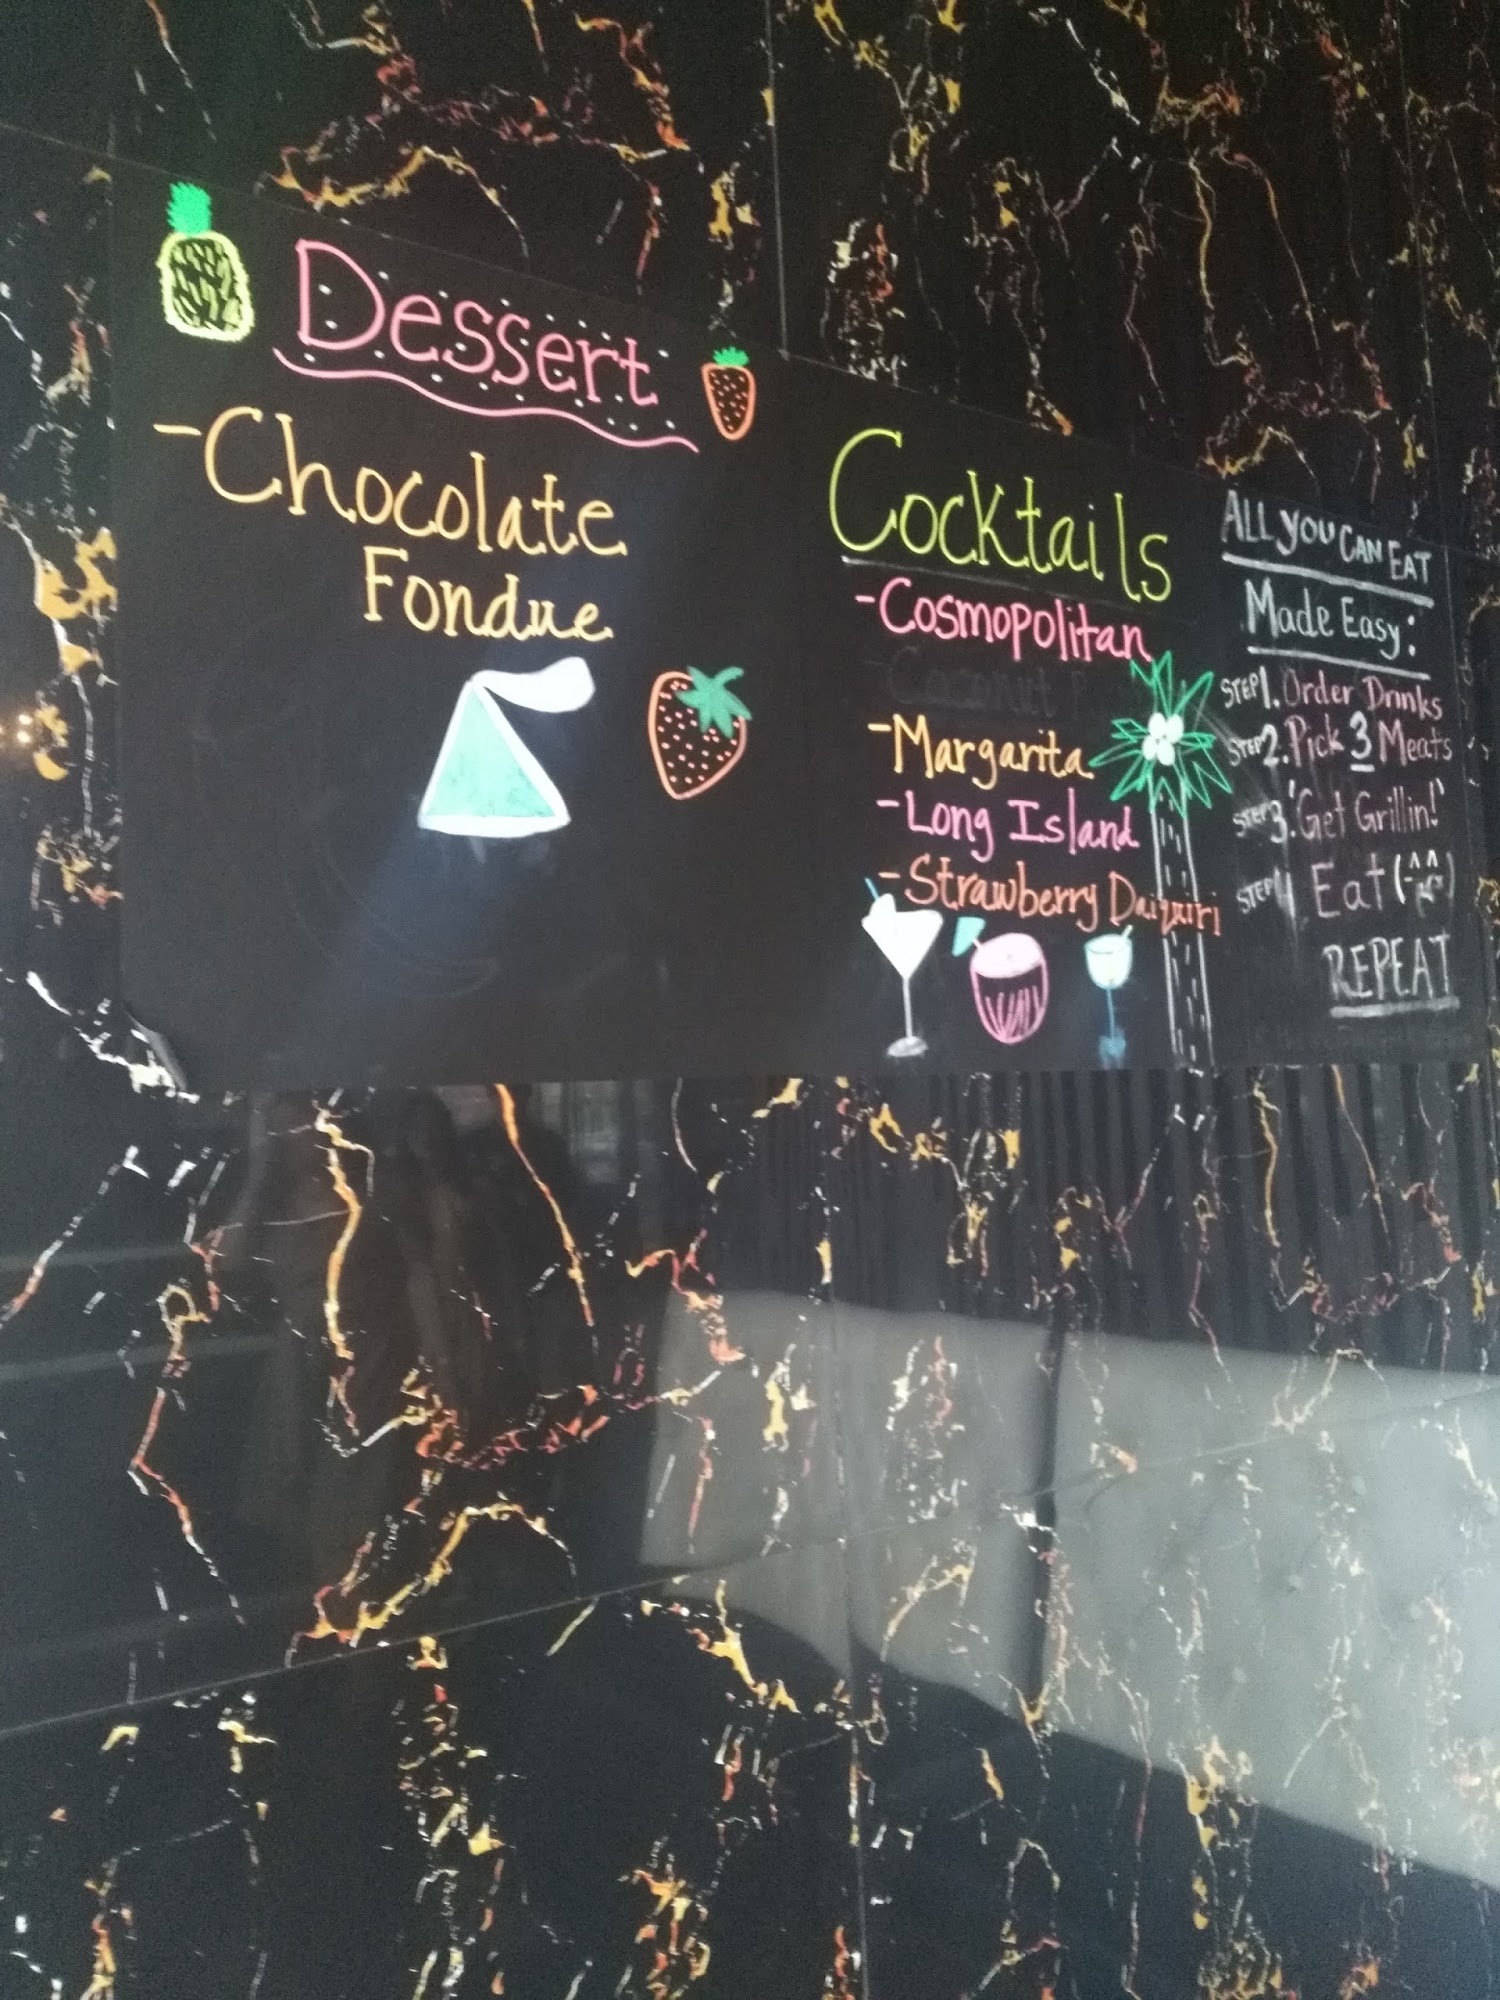 Dessert
-Chocolate
Fondue
Cocktails
-Cosmopolitan
-Coconut
-Margarita
-Long Island
-Strawberry Daiquiri
ALL YOU CAN EAT
Made Easy:
STEP 1. Order Drinks
STEP 2. Pick 3 Meats
STEP 3. 'Get Grillin!'
STEP 4. Eat
REPEAT